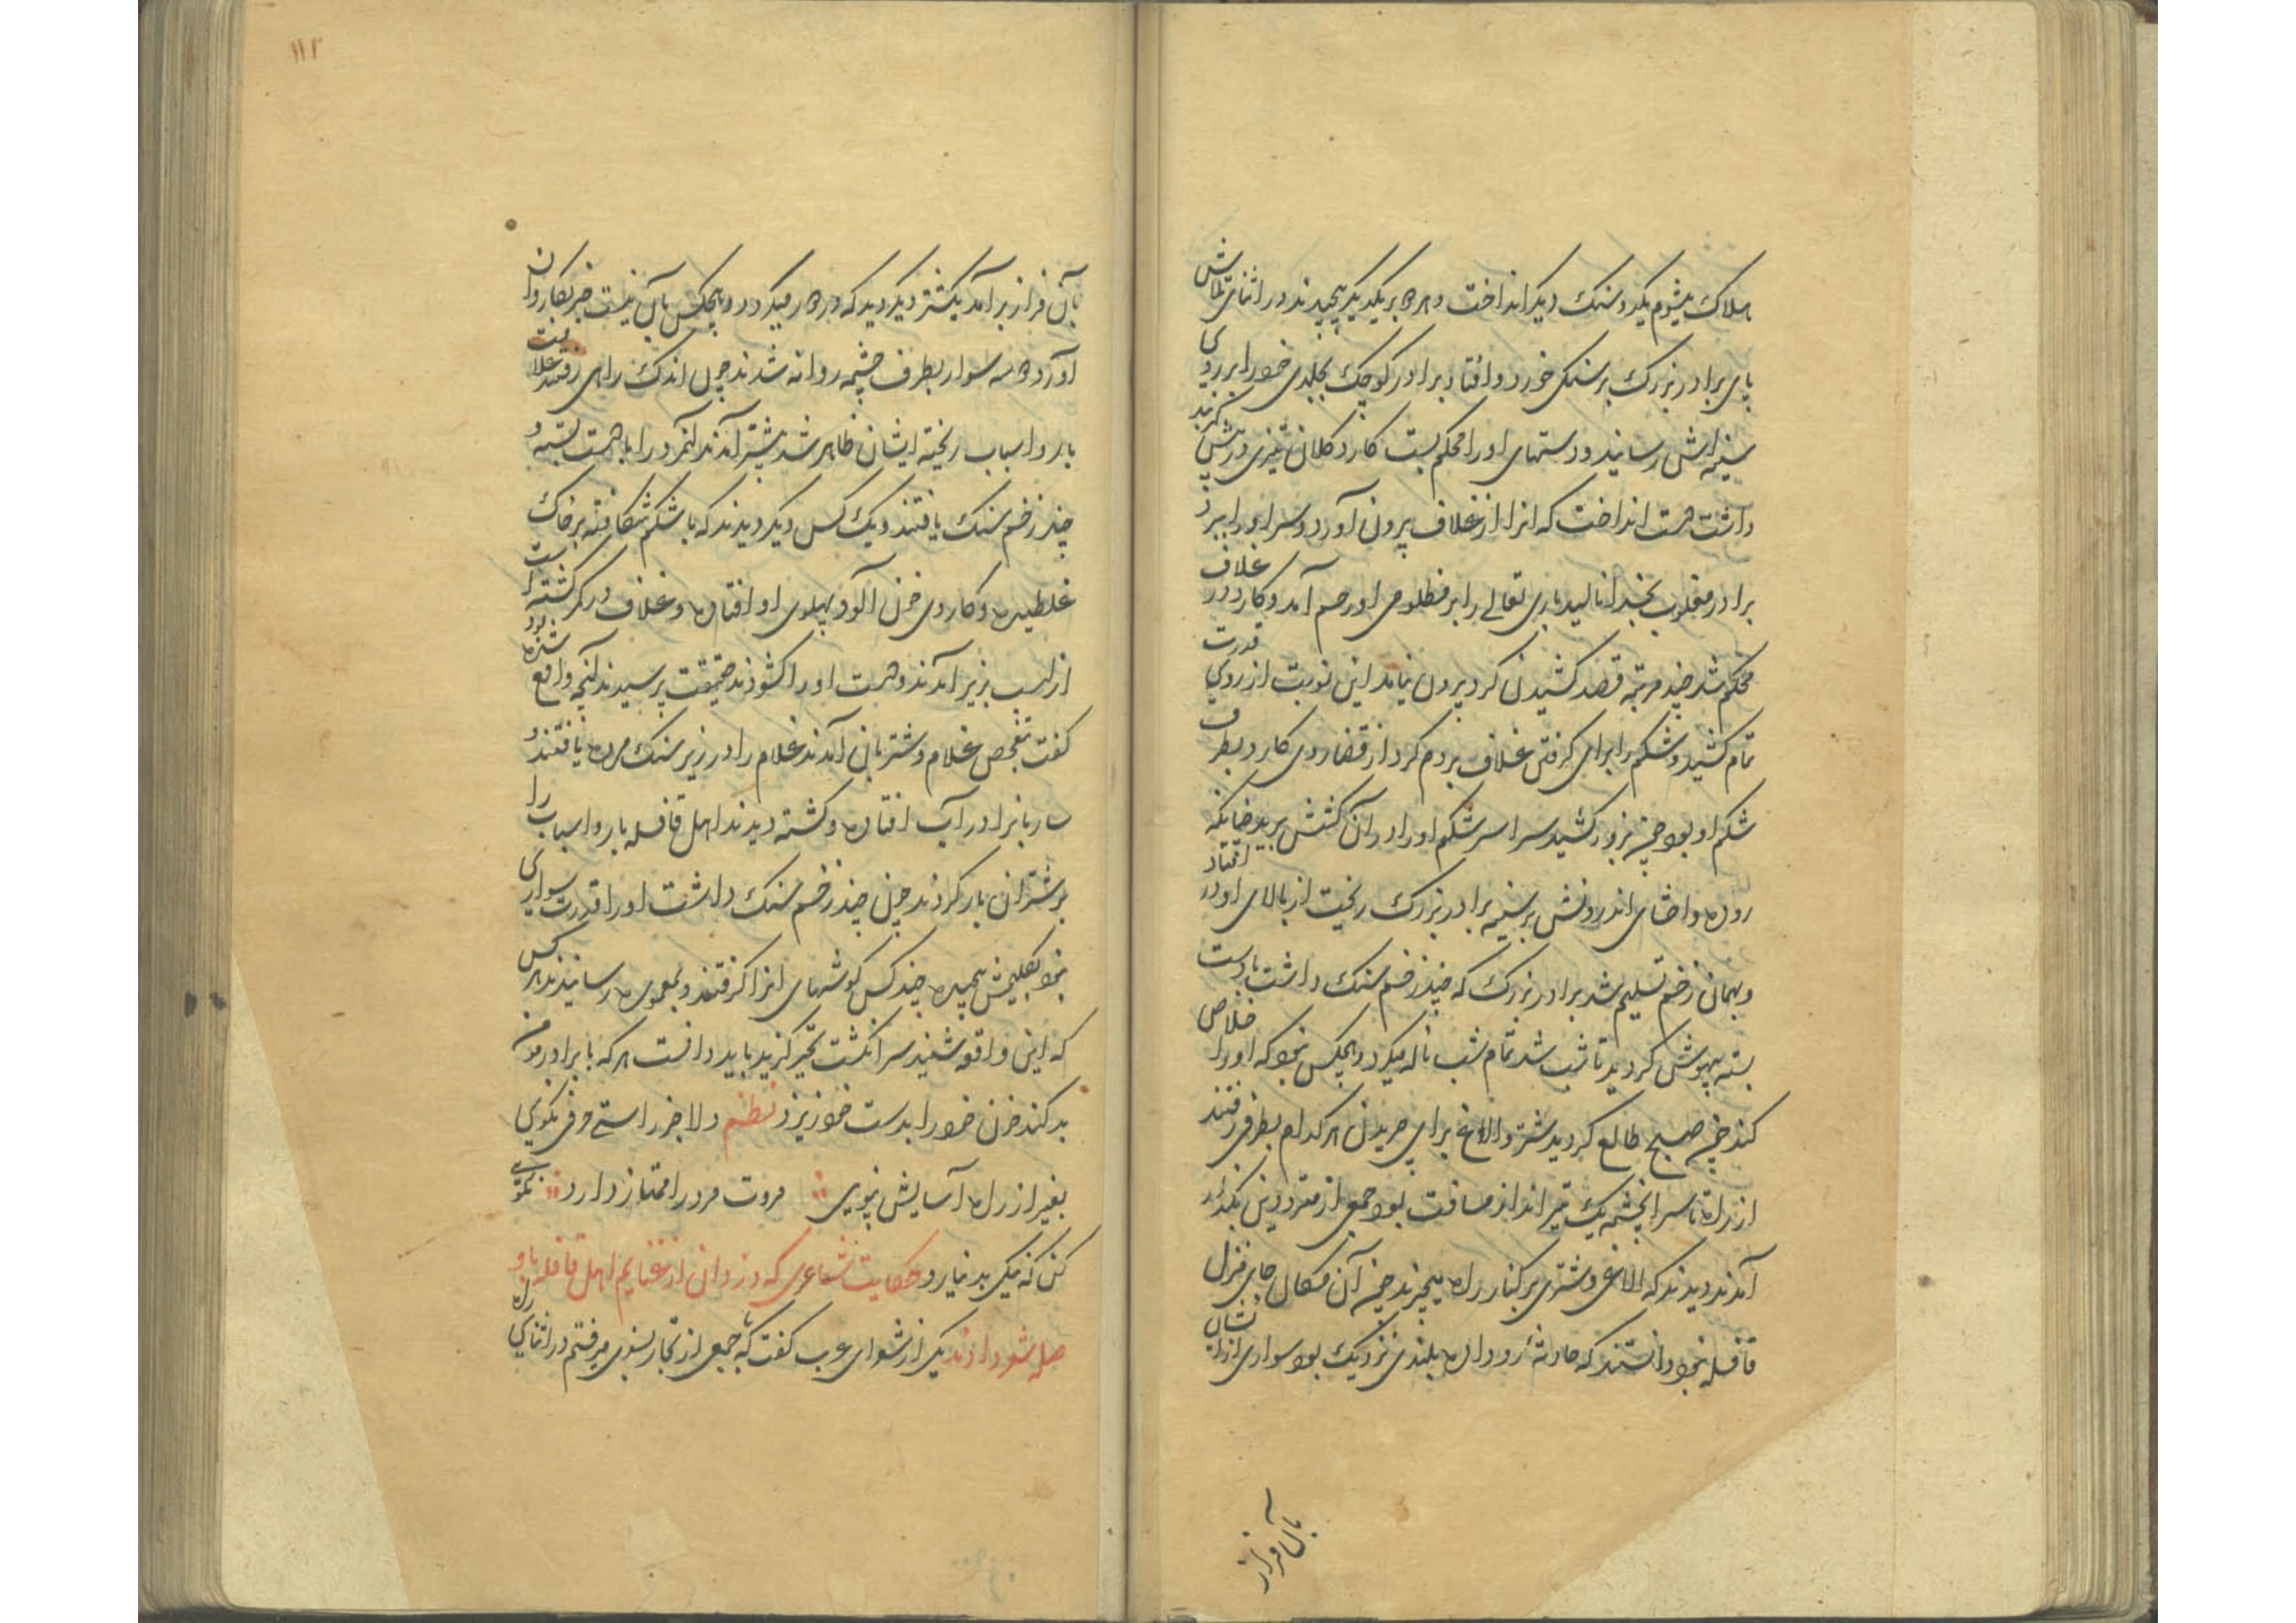 هلاک میشوم یکدو سنک دیکر انداخت و هردو بر یکدیکر پیچیدند در اثنای تلاش
پای برادر بزرک بر سنکی خورد و افتاد برادر کوچک بجلدی خود را بر روی
سینه اش رسانید و دستهای او را محکم بست کارد کلان تیزی در پیش کمربند
داشت دست انداخت که انرا از غلاف بیرون آورد و سر او را ببرد
برادر مغلوب بخدا نالید باری تعالی را بر مظلومی او رحم آمد و کارد در غلاف
محکم شد چند مرتبه قصد کشیدن کرد بیرون نیامد این نوبت از روی قدرت
تمام کشید و شکم را برای کرفتن غلاف بردم کرد از قضا روی کارد بطرف
شکم او بود چون بزور کشید سراسر شکم او را در آن کشش برید چنانکه
روده و احشای اندرونش بر سینه برادر بزرک ریخت از بالای او در افتاد
و بهمان زخم تسلیم شد برادر بزرک که چند زخم سنک داشت با دست
بسته بیهوش کردید تا شب شد تمام شب ناله میکرد و هیچکس نبود که او را خلاص
کند چون صبح طالع کردید شتر و الاغ برای چریدن هر کدام بطرفی رفتند
از راه تا سر انچشمه یک تیر انداز مسافت بود جمعی از مترددین که
آمدند دیدند که الاغی و شتری بر کنار راه میچرند چون آن مکان جای منزل
قافله نبود دانستند که حادثه رو داده بلندی نزدیک بود سواری از ایشان
بآن فراز
۱۱۲
بآن فراز بر آمد یکشتر دیکر دید که در میکردد و هیچکس بآن نیست خبر بکاروان
آورد ده سه سوار بطرف چشمه روانه شدند چون اندک راهی رفتند علامت
بار و اسباب ریخته ایشان ظاهر شد پیشتر آمدند آنمرد را با دست بسته و
چند زخم سنک یافتند و یک کس دیکر دیدند که با شکم شکافته بر خاک
غلطیده و کاردی خون آلود بپهلوی او افتاده و غلاف در کمر کشته است
از اسب بزیر آمدند و دست او را کشودند حقیقت پرسیدند آنچه واقع شده بود
کفت بتفحص غلام و شتربان آمدند غلام را در زیر سنک مرده یافتند و
ساربانرا در آب افتاده و کشته دیدند اهل قافله بار و اسباب را
بر شتران بار کردند چون چند زخم سنک داشت او را قدرت سواری
نبود بکلیمش پیچیده چند کس کوشهای انرا کرفتند و بمعموره رسانیدند هر کس
که این واقعه شنید سر انکشت تحیر کزید باید دانست هر که با برادر مومن
بد کند خون خود را بدست خود ریزد نظم دلا جز راستی حرفی نکویی
بغیر از راه آسایش نپویی مروت مرد را ممتاز دارد نکویی
کن که نیکی بد نیارد حکایت شاعری که دزدان از غنایم اهل قافله باو
صله شعر دادند یکی از شعرای عرب کفت که با جمعی از تجار بسفری میرفتم در اثنای راه